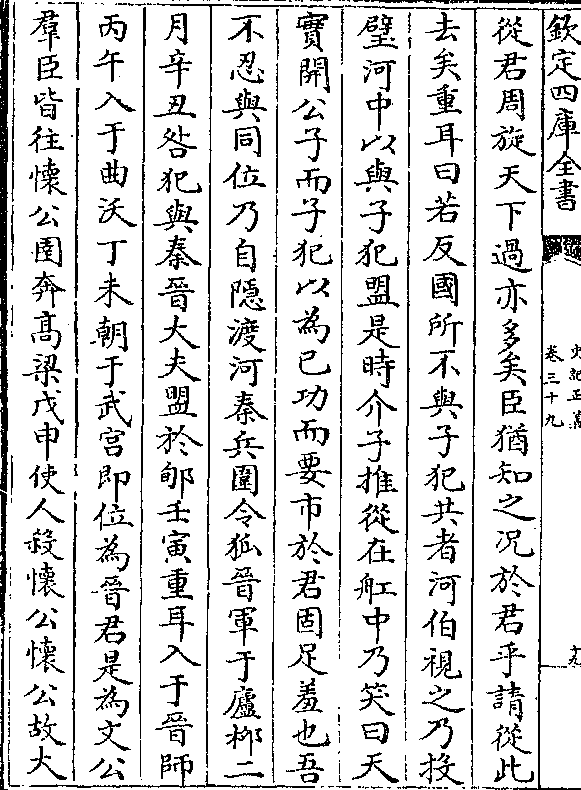 欽定四庫全書
史記正義
卷三十九
從君周旋天下過亦多矣臣猶知之况於君乎請從此
去矣重耳曰若反國所不與子犯共者河伯視之乃投
璧河中以與子犯盟是時介子推從在舡中乃笑曰天
實開公子而子犯以為己功而要市於君固足羞也吾
不忍與同位乃自隠渡河秦兵圍令狐晉軍于廬栁二
月辛丑咎犯與秦晉大夫盟於郇壬寅重耳入于晉師
丙午入于曲沃丁未朝于武宫即位為晉君是為文公
羣臣皆往懐公圉奔髙梁戊申使人殺懐公懐公故大